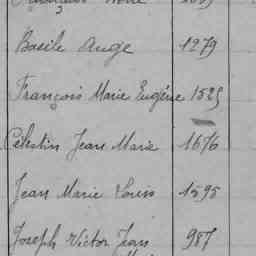 Basile Ange 1279
François Marie Eugène 1525
Célestin Jean Marie 1676
Jean Marie Louis 1595
Joseph Victor Jean 987